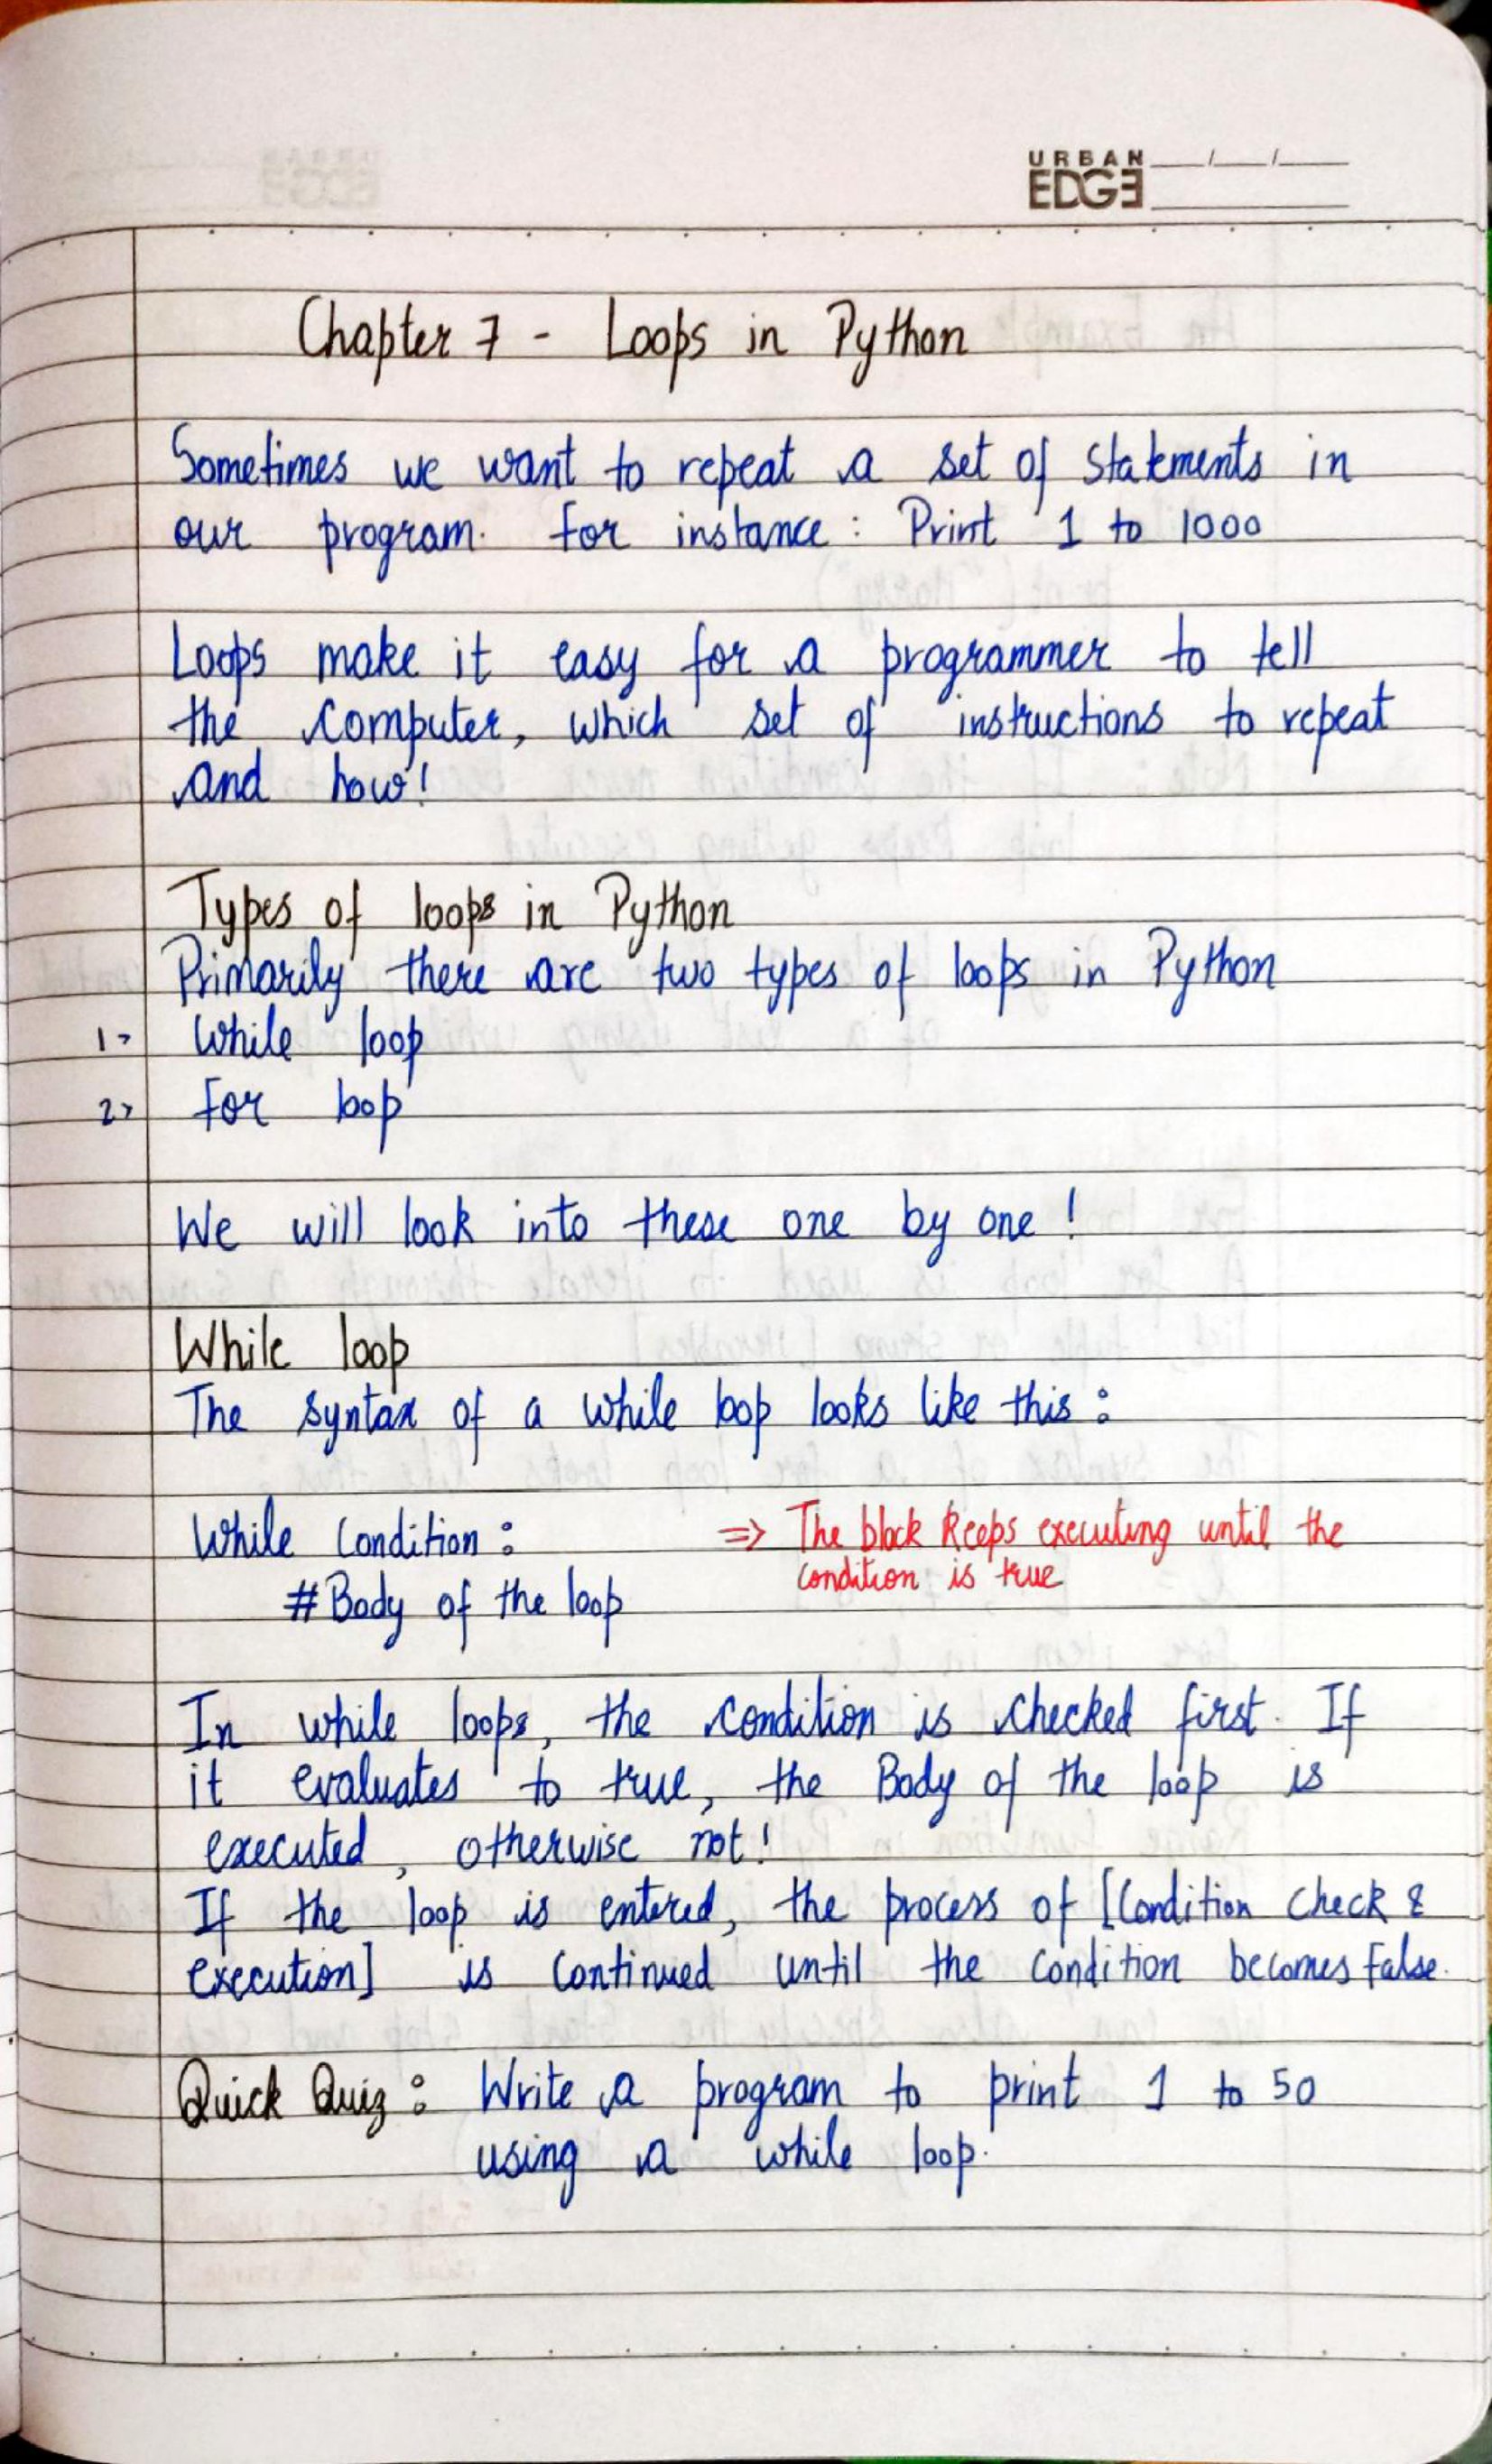 URBAN
EDGE
Chapter 7 - Loops in Python
Sometimes we want to repeat a set of statements in
our program. For instance : Print 1 to 1000
Loops make it easy for a programmer to tell
the computer, which set of instructions to repeat
and how!
Types of loops in Python
Primarily there are two types of loops in Python
1> While loop
2> For loop
We will look into these one by one !
While loop
The syntax of a while loop looks like this :
While Condition : => The block keeps executing until the
condition is true
# Body of the loop
In while loops, the condition is checked first. If
it evaluates to true, the Body of the loop is
executed, otherwise not!
If the loop is entered, the process of [Condition check &
execution] is continued until the condition becomes False.
Quick Quiz : Write a program to print 1 to 50
using a while loop.